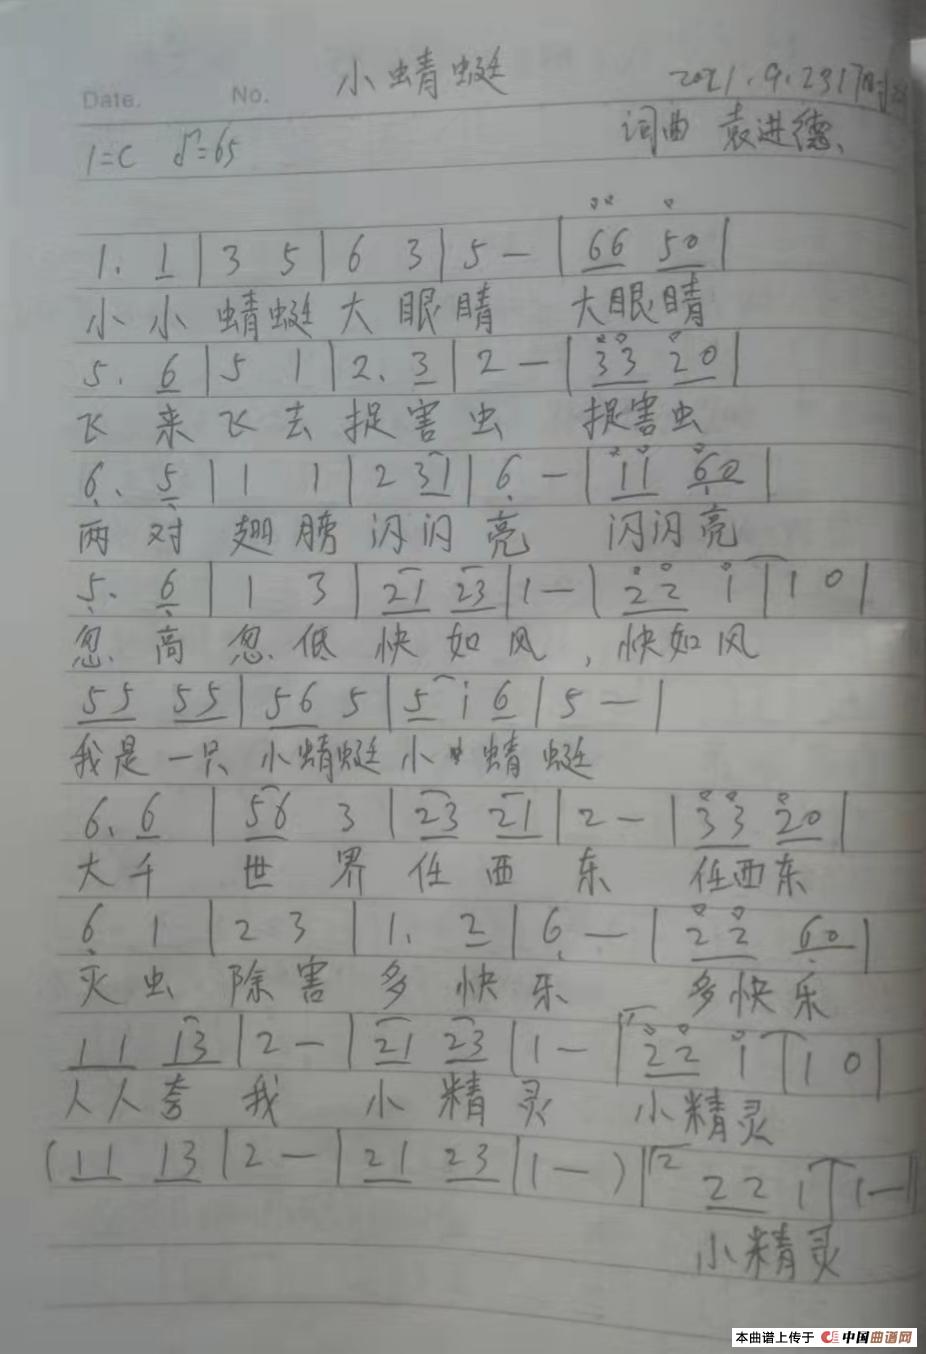 小蜻蜓
Date. No. 2021.9.23 17时
1=C =65 词曲 袁进德
1. 1 | 3 5 | 6 3 | 5 — | 66 50 |
小小蜻蜓大眼睛 大眼睛
5. 6 | 5 1 | 2. 3 | 2 — | 33 20 |
飞来飞去捉害虫 捉害虫
6. 5 | 1 1 | 2 31 | 6 — | 11 60 |
两对翅膀闪闪亮 闪闪亮
5. 6 | 1 3 | 21 23 | 1 — | 22 1 | 1 0 |
忽高忽低快如风,快如风
55 55 | 56 5 | 5 i 6 | 5 — |
我是一只小蜻蜓小蜻蜓
6. 6 | 56 3 | 23 21 | 2 — | 33 20 |
大千世界任西东 任西东
6 1 | 2 3 | 1. 2 | 6 — | 22 60 |
灭虫除害多快乐 多快乐
11 13 | 2 — | 21 23 | 1 — | 1 22 1 | 1 0 |
人人夸我小精灵 小精灵
( 11 13 | 2 — | 21 23 | 1 — ) | 2 22 1 | 1 — ‖
小精灵
本曲谱上传于 中国曲谱网